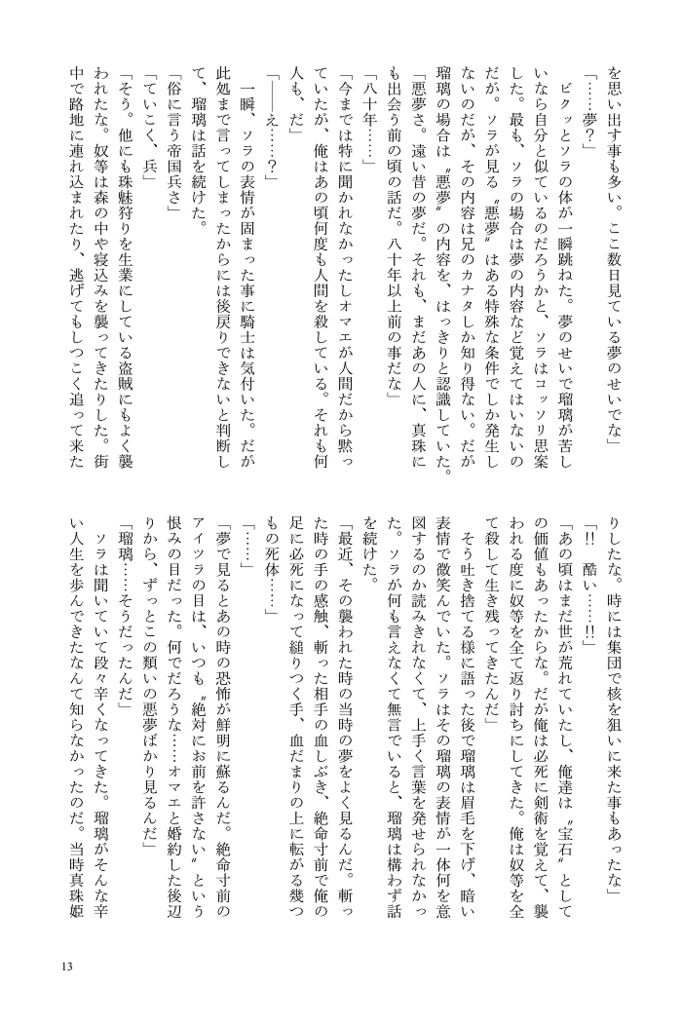 を思い出す事も多い。ここ数日見ている夢のせいでな」
「……夢？」
　ビクッとソラの体が一瞬跳ねた。夢のせいで瑠璃が苦し
いなら自分と似ているのだろうかと、ソラはコッソリ思案
した。最も、ソラの場合は夢の内容など覚えてはいないの
だが。ソラが見る〝悪夢〟はある特殊な条件でしか発生し
ないのだが、その内容は兄のカナタしか知り得ない。だが
瑠璃の場合は〝悪夢〟の内容を、はっきりと認識していた。
「悪夢さ。遠い昔の夢だ。それも、まだあの人に、真珠に
も出会う前の頃の話だ。八十年以上前の事だな」
「八十年……」
「今までは特に聞かれなかったしオマエが人間だから黙っ
ていたが、俺はあの頃何度も人間を殺している。それも何
人も、だ」
「――え……？」
　一瞬、ソラの表情が固まった事に騎士は気付いた。だが
此処まで言ってしまったからには後戻りできないと判断し
て、瑠璃は話を続けた。
「俗に言う帝国兵さ」
「ていこく、兵」
「そう。他にも珠魅狩りを生業にしている盗賊にもよく襲
われたな。奴等は森の中や寝込みを襲ってきたりした。街
中で路地に連れ込まれたり、逃げてもしつこく追って来た
りしたな。時には集団で核を狙いに来た事もあったな」
「!!　酷い……!!」
「あの頃はまだ世が荒れていたし、俺達は〝宝石〟として
の価値もあったからな。だが俺は必死に剣術を覚えて、襲
われる度に奴等を全て返り討ちにしてきた。俺は奴等を全
て殺して生き残ってきたんだ」
　そう吐き捨てる様に語った後で瑠璃は眉毛を下げ、暗い
表情で微笑んでいた。ソラはその瑠璃の表情が一体何を意
図するのか読みきれなくて、上手く言葉を発せられなかっ
た。ソラが何も言えなくて無言でいると、瑠璃は構わず話
を続けた。
「最近、その襲われた時の当時の夢をよく見るんだ。斬っ
た時の手の感触、斬った相手の血しぶき、絶命寸前で俺の
足に必死になって縋りつく手、血だまりの上に転がる幾つ
もの死体……」
「……」
「夢で見るとあの時の恐怖が鮮明に蘇るんだ。絶命寸前の
アイツラの目は、いつも〝絶対にお前を許さない〟という
恨みの目だった。何でだろうな……オマエと婚約した後辺
りから、ずっとこの類いの悪夢ばかり見るんだ」
「瑠璃……そうだったんだ」
　ソラは聞いていて段々辛くなってきた。瑠璃がそんな辛
い人生を歩んできたなんて知らなかったのだ。当時真珠姫
13